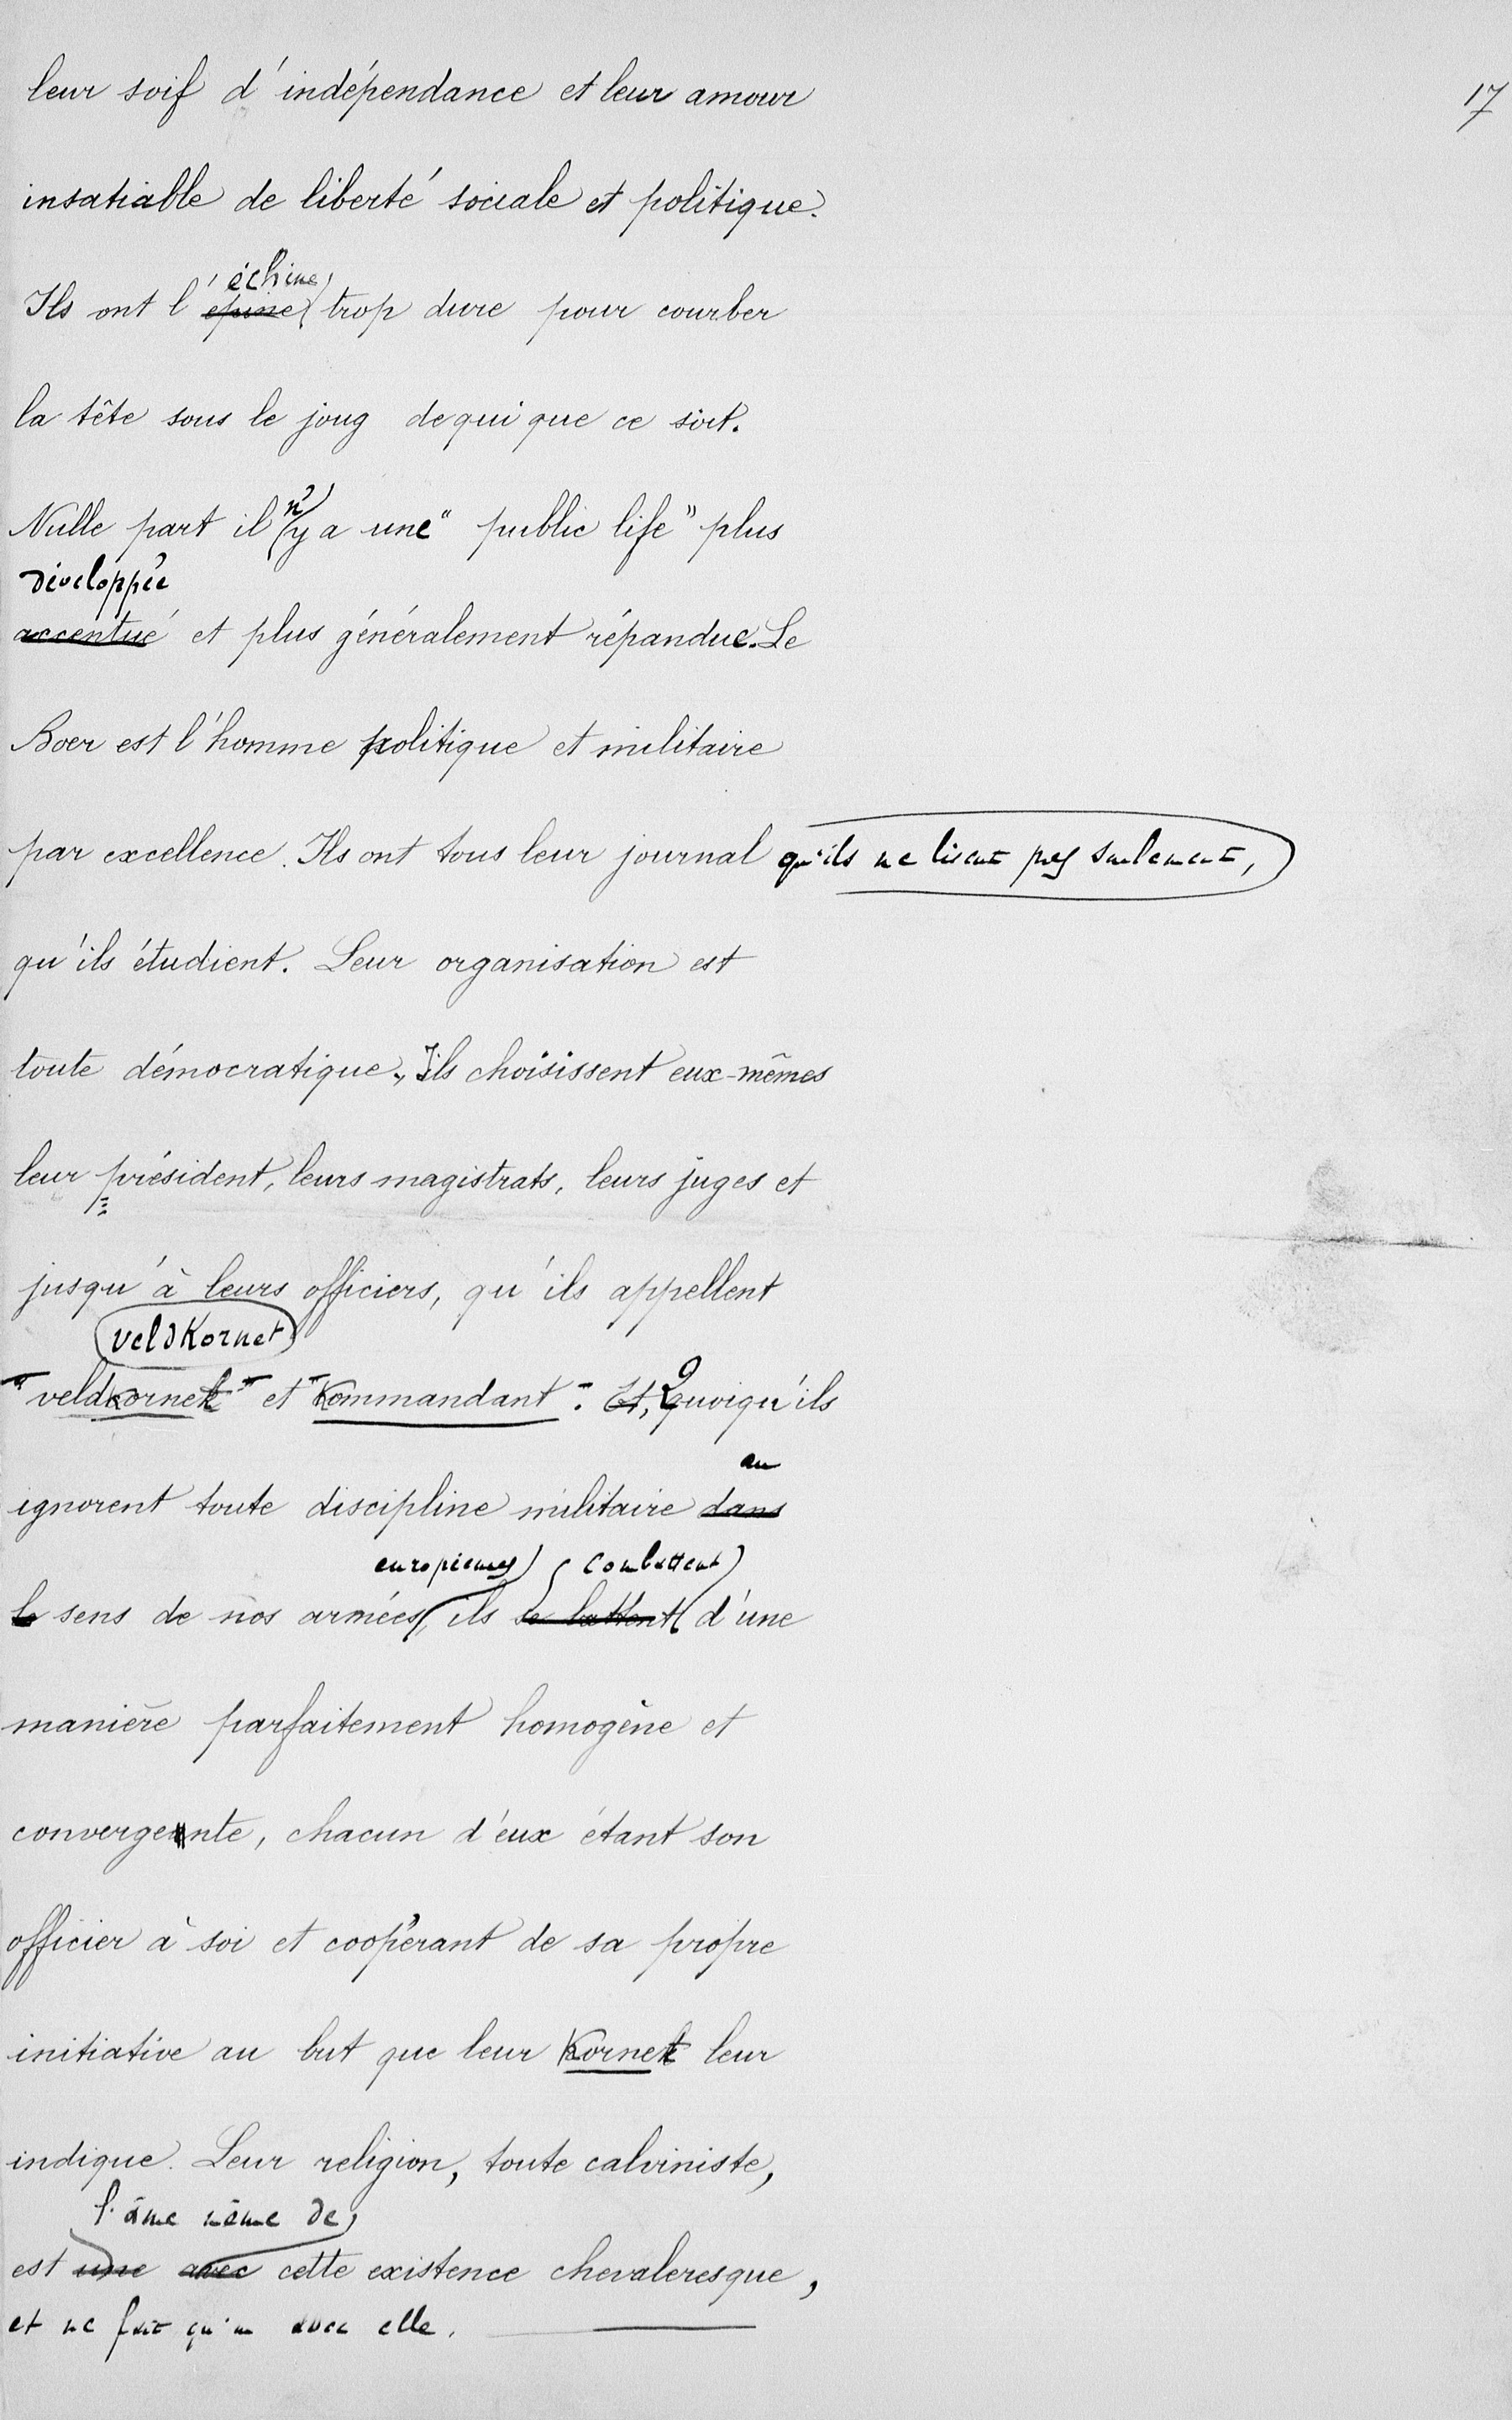 17
leur soif d'indépendance et leur amour
insatiable de liberté sociale et politique.
échine
Ils ont l'épine trop dure pour courber
la tête sous le joug de qui que ce soit.
n'
Nulle part il y a une "public life" plus
développée
accentué et plus généralement répandue. Le
Boer est l'homme politique et militaire
par excellence. Ils ont tous leur journal qu'ils ne lisent pas seulement,
qu'ils étudient. Leur organisation est
toute démocratique. Ils choisissent eux-mêmes
leur président, leurs magistrats, leurs juges et
jusqu'à leurs officiers, qu'ils appellent
veldkornet
"veldkornet" et "Kommandant". Et, Quoiqu'ils
au
ignorent toute discipline militaire dans
européennes combattent
le sens de nos armées, ils se battent d'une
manière parfaitement homogène et
convergente, chacun d'eux étant son
officier à soi et coopérant de sa propre
initiative au but que leur Kornet leur
indique. Leur religion, toute calviniste,
l'âme même de
est une avec cette existence chevaleresque,
et ne fait qu'un avec elle.